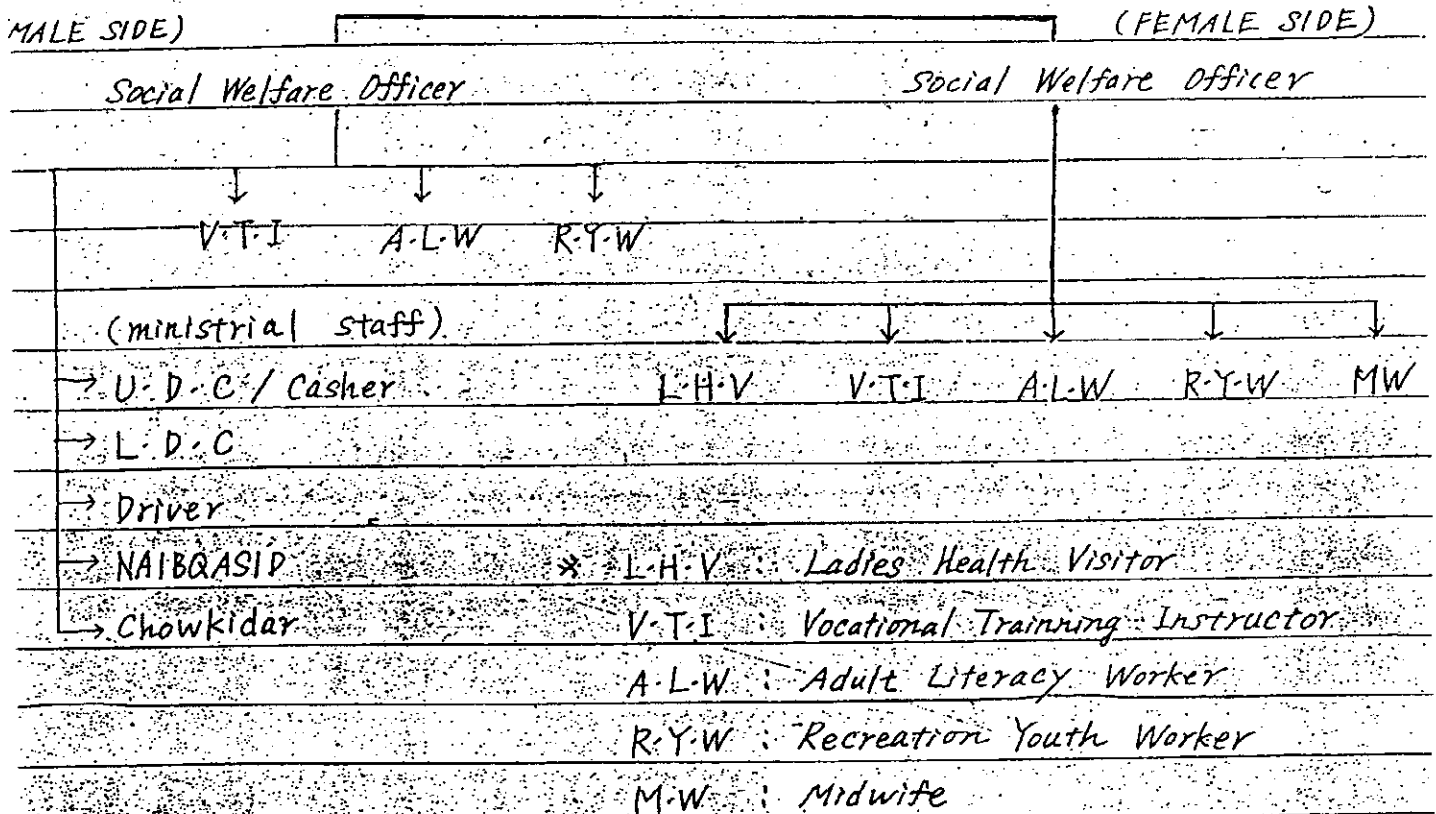 MALE SIDE) (FEMALE SIDE)
Social Welfare Officer Social Welfare Officer
V·T·I A·L·W R·Y·W
(ministrial staff)
U·D·C / Casher L·H·V V·T·I A·L·W R·Y·W MW
L·D·C
Driver
NAIBQASID * L·H·V : Ladies Health Visitor
Chowkidar V·T·I : Vocational Trainning Instructor
A·L·W : Adult Literacy Worker
R·Y·W : Recreation Youth Worker
M·W : Midwife